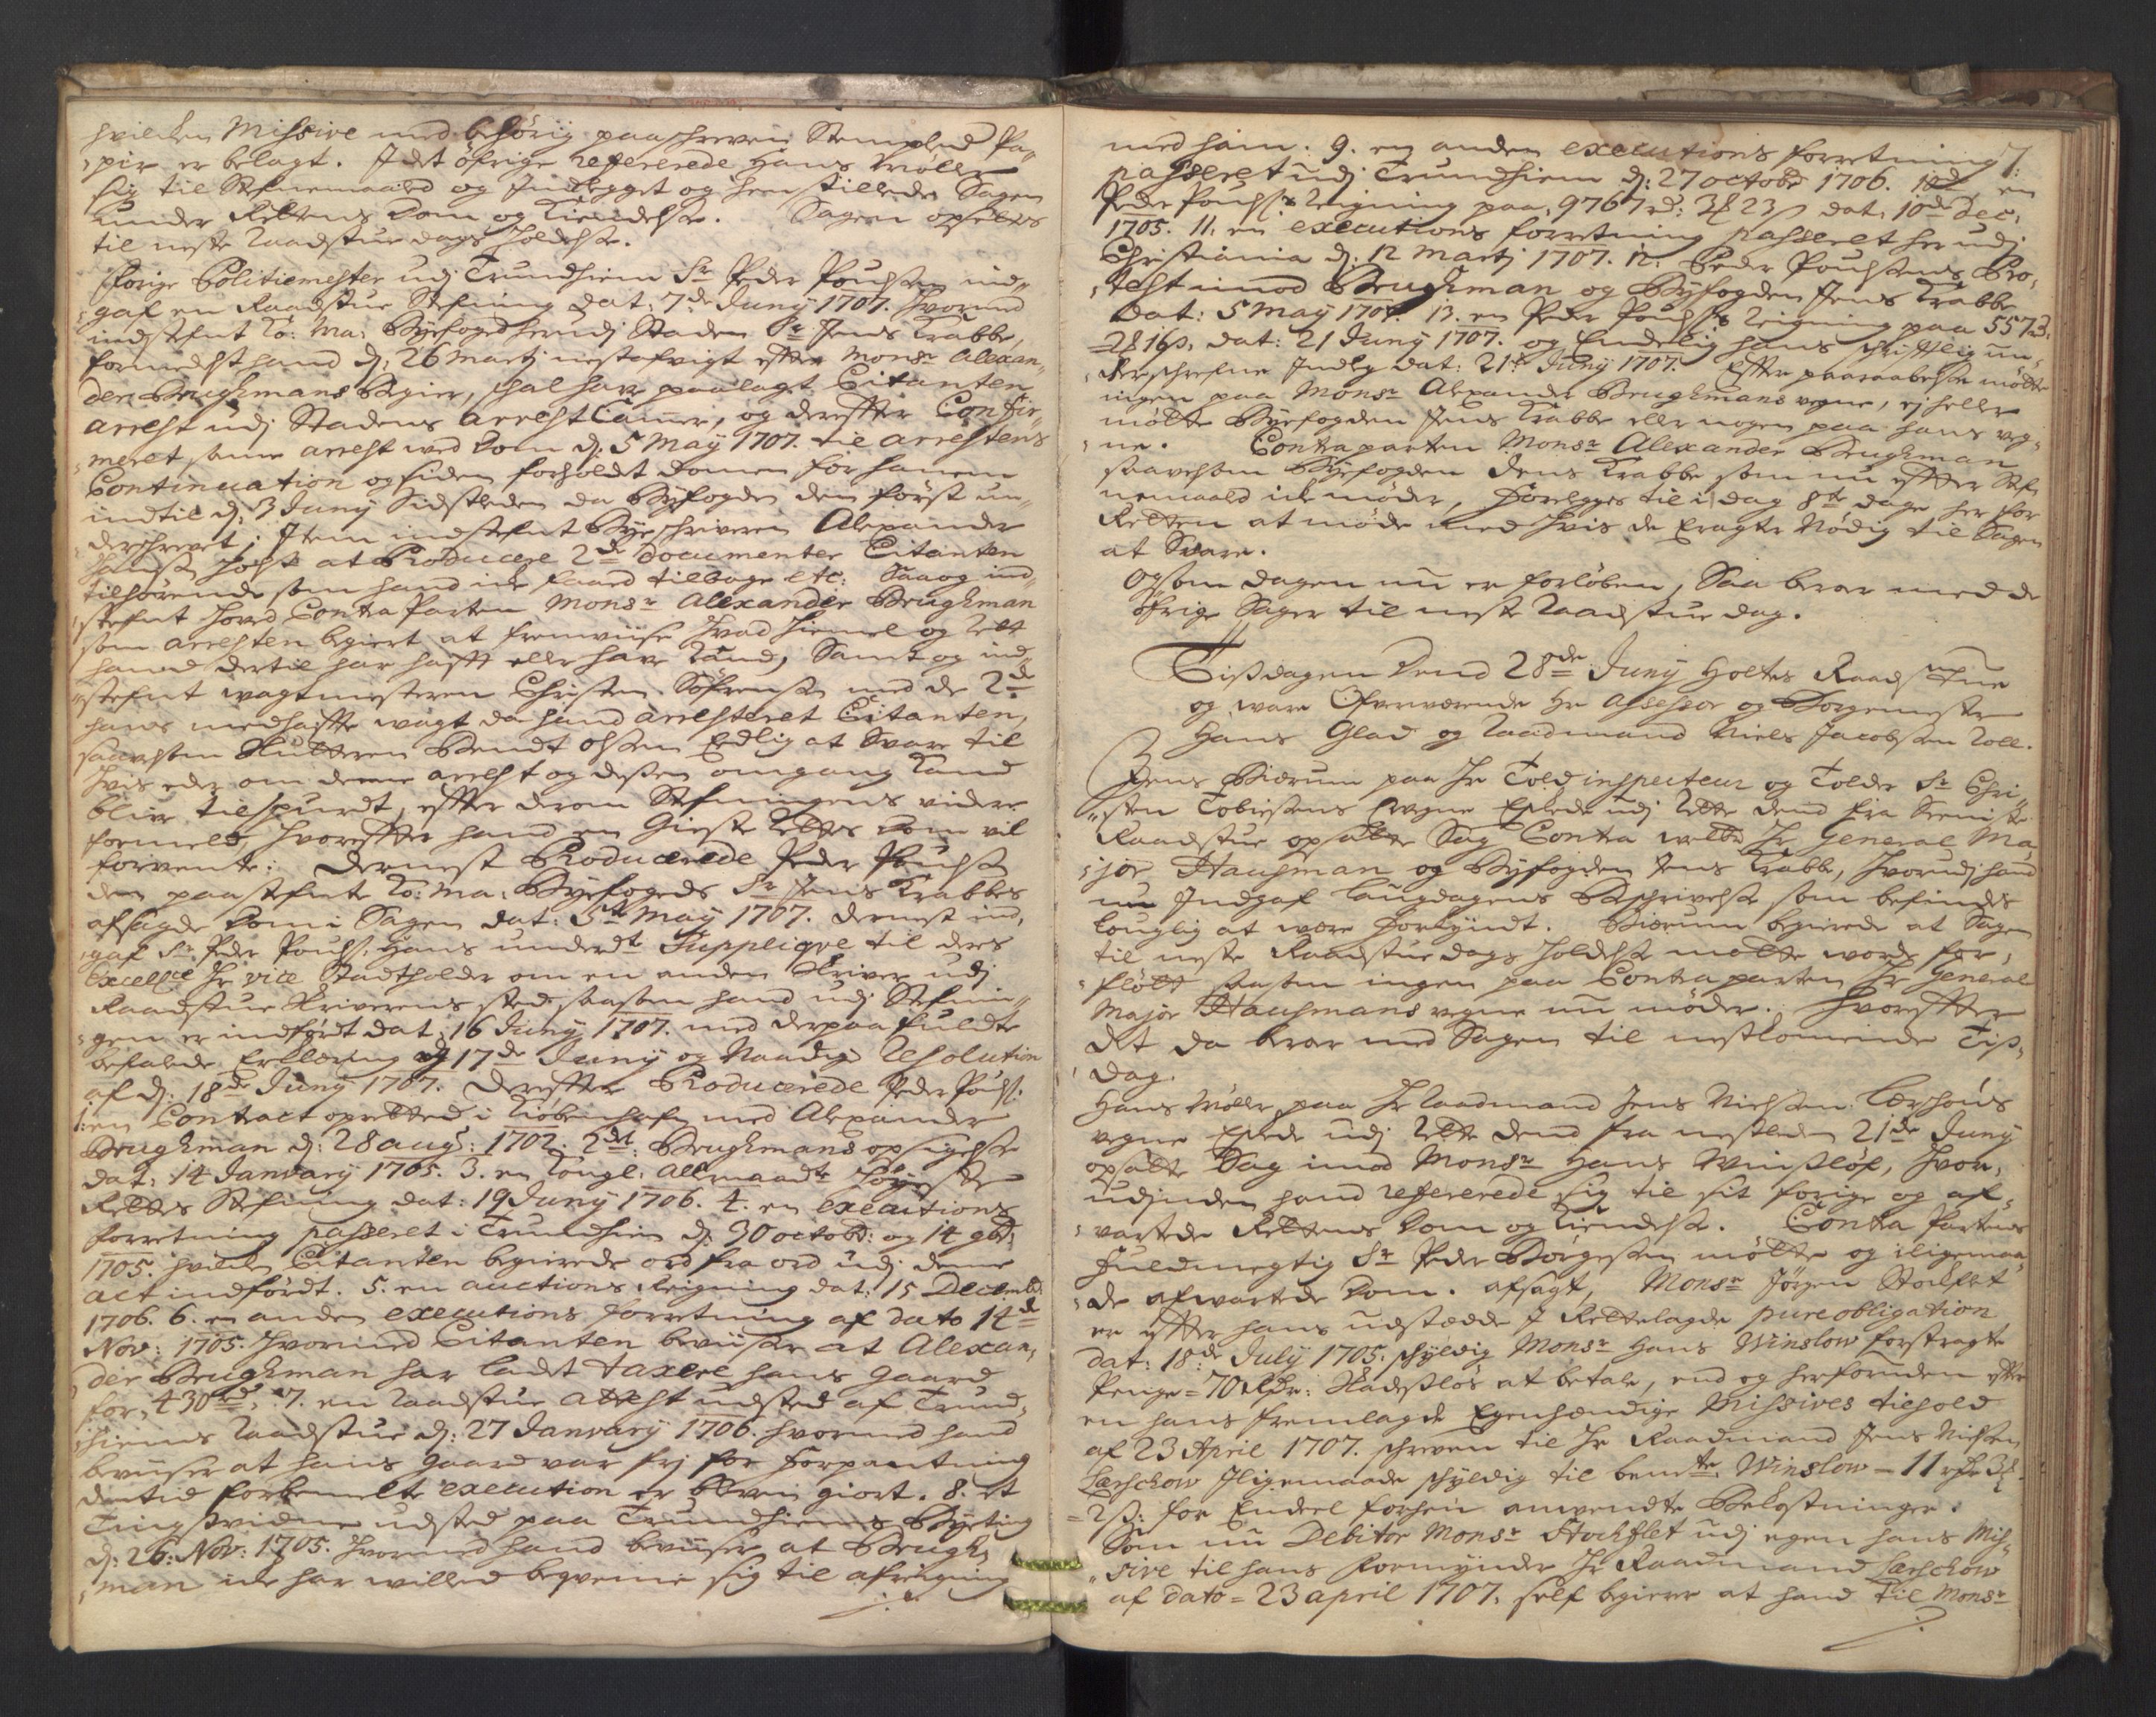 hvilcken Missive med behörig paaschreven Stempled Pa„
„pir er belagt. J det öfrige refererede Hans Möller
sig til Stefnemaald og Jndlegget og henstillede Sagen
under Rettens Dom og Kiendelse. Sagen opsettes
til neste Raadstue dags holdelse.
Forige Politiemester udj Trundhiem Sr Peder Poulsen ind„
„gaf en Raadstue Stefning dat: 7de Juny 1707. hvormed
indstefnt Ko: Ma: Byefoged herudj Staden Sr Jens Krabbe,
formedelst hand d: 26 Martj nestafvigt efter Monsr Alexan„
der Brughmans Begier, schal have paalagt Citanten
arrest udj Stadens arrest Camer, og derefter Confir„
„meret samme arrest ved Dom d: 5 May 1707. til arrestens
Continuation og siden forholdt Domen for hanem
indtil d: 3 Juny Sidstleden da Byfogden den först un„
„derschrevet; Jtem indstefnt Byeschriveren Alexander
at Producere 2de Documenter Citanten
tilhörende som hand icke faaed tilbage etc: Saa og ind„
„stefnt hoved Contra Parten Monsr Alexander Brughman
som arresten begiert at fremviise hvad hiemel og Rett
hand dertil har hafft eller have kand, Samt og ind„
„stefnt wagtmesteren Christen Söfrensen med de 2de
hans medhaffte wagt da hand arresteret Citanten,
saavelsom Slutteren Bendt Olsen Edlig at Svare til
hvis eder om denne arrest og dessen omgang kand
blive tilspurdt, effter derom Stefningens videre
formeld, hvoreffter hand en Gieste Rettes Dom vil
forvente: Dernest Producerede Peder Poulsen
den paastefnte Ko: Ma: Byefogeds Sr Jens Krabbes
afsagde Dom i Sagen dat: 5te May 1707. dernest ind„
„gaf Sr Peder Pouls: Hans underdte Supplique til deres
Excellce Hr vice Stadtholder om en anden Skriver udj
Raadstue Skriverens sted saasom hand udj Stefnin„
„gen er indfört dat: 16 Juny 1707. med derpaa fuldte
befalede Erklæring af 17de Juny og Naadige Resolution
af d: 18de Juny 1707. Dereffter Producerede Peder Pouls:
1: en Contract oprettet i Kiöbenhafn med Alexander
Brughman d: 28 aug: 1702. 2det: Brughmans opsigelse
dat: 14 January 1705. 3. en Kongl: allernaadte höyeste
Rettes Stefning dat: 19 Juny 1706. 4. en Executions
forretning passeret i Trundhiem d: 30 octobr: og 14 9br:
1705. hvilcke Citanten begierede ord fra ord udj denne
act indfördt. 5. en auctions Reigning dat: 15 Decembr
1706. 6. en anden executions forretning af dato 14de
Nov: 1705. hvormed Citanten beviiser at Alexan„
der Brughman har ladet taxere hans Gaard
for: 430 rd: 7. en Raadstue attest udsted af Trund„
„hiems Raadstue d: 27 January 1706. hvormed hand
beviiser at hans Gaard var frj for Forpantning
den tid forbemelte execution er bleven giort. 8. et
Tingsvidne udsted paa Trundhiems Byeting
d: 26: Nov: 1705. hvormed hand beviiser at Brugh„
„man icke har willed beqveme sig til afreigning
med ham. 9. en anden executions forretning
passeret udj Trundhiem d: 27 octobr 1706. 10de en
Peder Pouls: Reigning paa, 9767 rd: 3 23 dat: 10de Dec:
1705. 11. en executions forretning passeret her udj
Christiania d: 12 Martj 1707. 12. Peder Poulsens Pro„
„test imod Brughman og Byfogden Jens Krabbe
dat: 5 May 1707. 13. en Peder Pouls: Reigning paa 557 rd:
28 16 s, dat: 21 Juny 1707. og Endelig hans schrifftlig un„
„derschrefne Jndleg dat: 21de Juny 1707. Effter paaraabelse mötte
ingen paa Monsr Alexander Brughmans vegne, ej heller
mötte Byefogden Jens Krabbe eller nogen paa hans veg„
„ne. Contraparten Monsr Alexander Brughman
saavelsom Byfogden Jens Krabbe som nu effter Stef„
nemaald icke möder, Forelegges til i dag 8te dage her for
Retten at möde med hvis de Eragter Nödig til Sagen
at Svare.
Og som dagen nu er forlöben, Saa beror med de
öfrige Sager til neste Raadstue dag.
Tissdagen Dend 28de Juny Holtes Raadstue
og ware Ofverværende Hr Assessor og Borgemester
Hans Glad og Raadmand Niels Jacobsen Roll.
Jens Biærum paa Hr Told inspecteur og Tolder Sr Chri„
„sten Tobiesens vegne Eskede udj Rette dend fra Seeniste
Raadstue opsatte Sag Contra welbr Hr General Ma„
„jor Hausman og Byfogden Jens Krabbe, hvorudj hand
nu Jndgaf laugdagens Beschrivelse som befindes
louglig at were forkyndt. Biærum begierede at Sagen
til neste Raadstue dags holdelse motte vorde for„
„flött saasom ingen paa Contraparten Hr General
Major Hausmans vegne nu möder. Hvoreffter
det da beror med Sagen til nestkomende Tiss„
„dag.
Hans Möller paa Hr Raadmand Jens Nielsen Lerschous
vegne Eskede udj Rette dend fra nestleden 21de Juny
opsatte Sag imod Monsr Hans Winslöf, hvor„
udjnden hand refererede sig til sit forige og af„
„vartede Rettens Dom og Kiendelse. Contra Partens
Fuldmegtig Sr Peder Börgesen mötte og iligemaa„
„de afwartede Dom. Afsagt, Monsr Jörgen Stockflet
er effter hans udstædde J Rettelagde pure obligation
dat: 18de July 1705. schyldig Monsr Hans Winslow forstragte
Penge = 70 Rdr: Skadeslös at betale, end og herforuden effter
en hans fremlagde Egenhendige Missives tilhold
af 23 April 1707. schreven til Hr Raadmand Jens Nielsen
Lerschow Jligemaade schyldig til bemte: Winslow = 11 rdr 3
= 2 s: for Endeel forhen anvendte Bekostninger.
Som nu Debitor Monsr Stochflet udj egen hans Mis„
„sive til hans Formynder Hr Raadmand Lerschow
af dato = 23 april 1707. self begierer at hand til Monsr